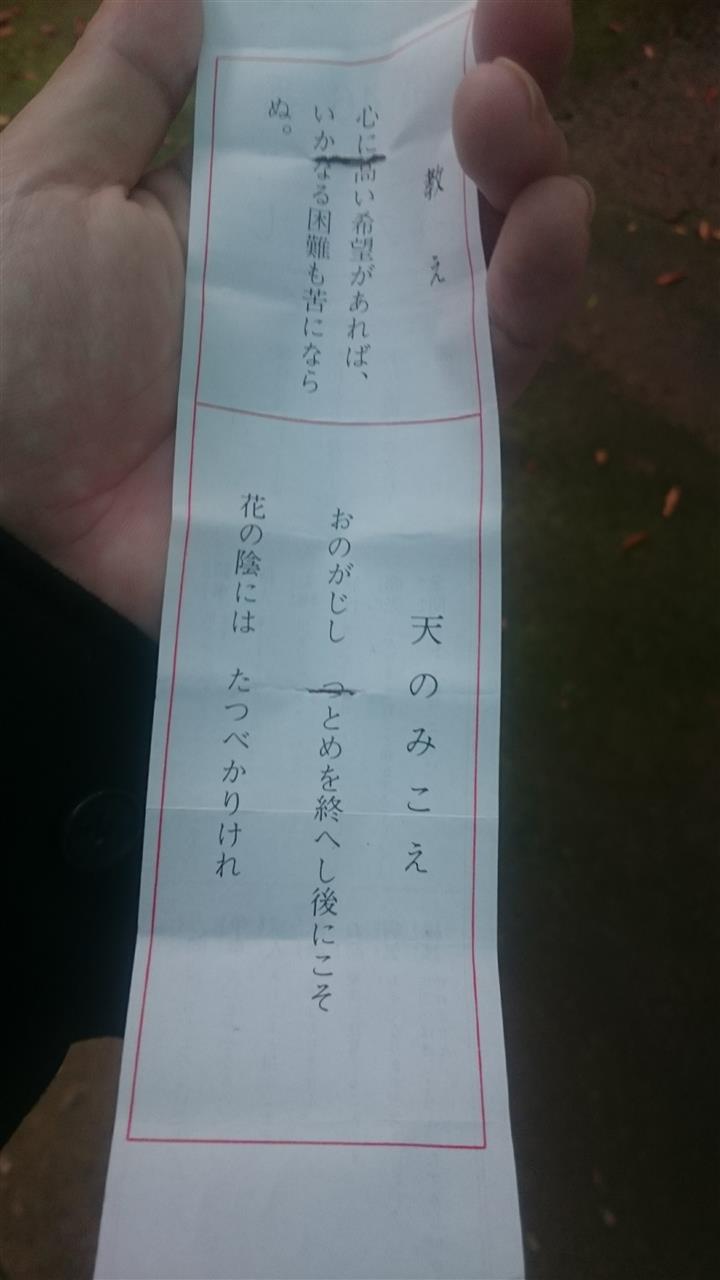 教え
心に高い希望があれば、
いかなる困難も苦になら
ぬ。
天のみこえ
おのがじし　つとめを終へし後にこそ
花の陰には　たつべかりけれ